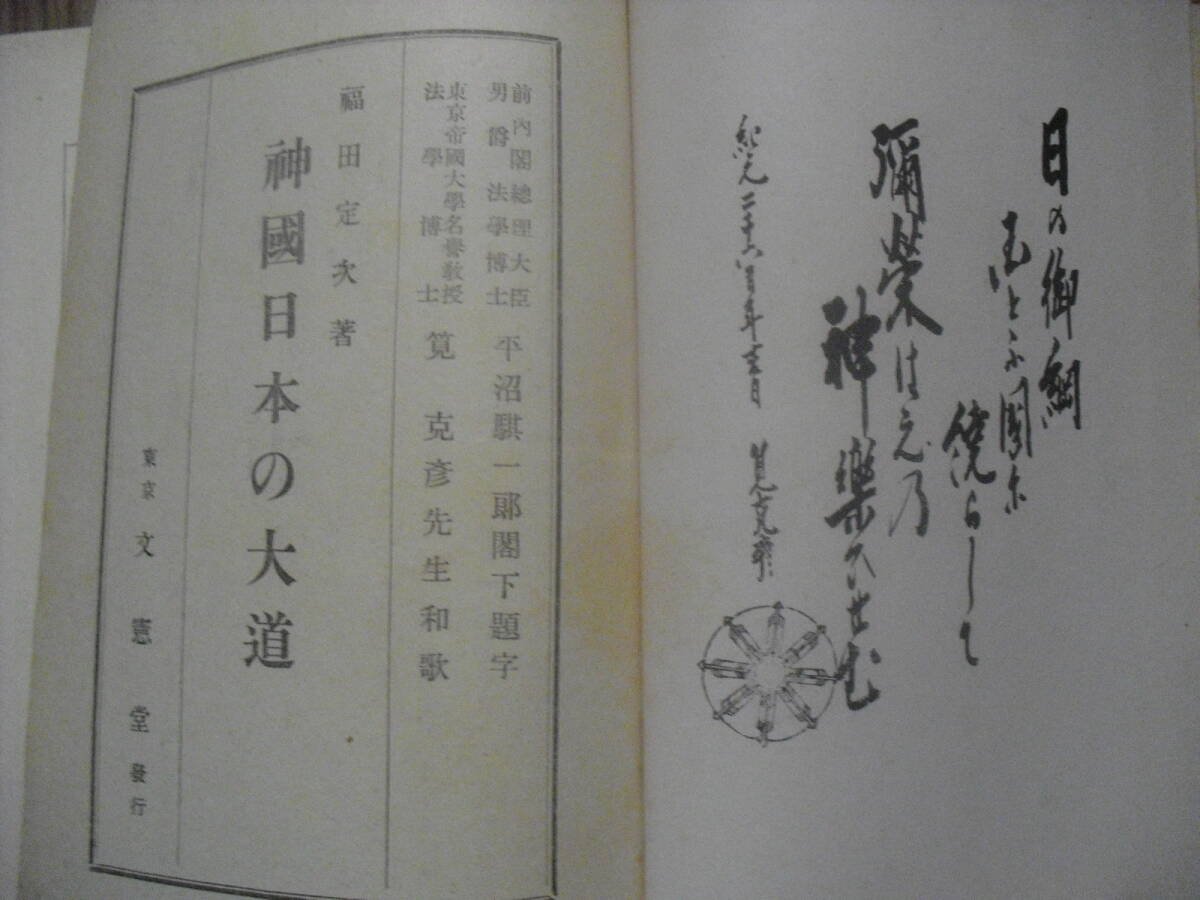 日の御綱
繞らして
彌榮
神樂
紀元二千六百年
筧克彦
前內閣總理大臣
男爵 法學博士 平沼騏一郞閣下題字
東京帝國大學名譽敎授
法學博士 筧 克彥先生和歌
福田定次著
神國日本の大道
東京 文憲堂發行